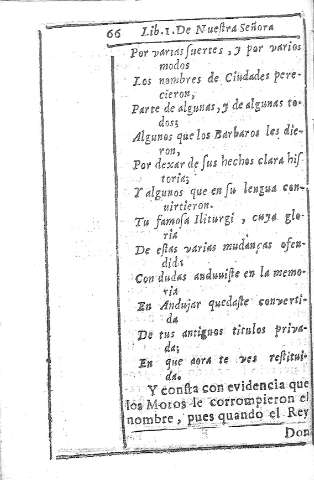 66 Lib. 1. De Nueſtra Señora
Por varias ſuertes, y por varios
modos
Los nombres de Ciudades pere-
cieron,
Parte de algunas, y de algunas to-
dos;
Algunos que los Barbaros les die-
ron,
Por dexar de ſus hechos clara hiſ
toria;
Y algunos que en ſu lengua con-
uirtieron.
Tu famoſa Iliturgi, cuya glo-
ria
De eſtas varias mudanças ofen-
dida
Con dudas anduuiſte en la memo-
ria
En Andujar quedaſte converti-
da
De tus antiguos titulos priva-
da;
En que aora te ves reſtitui-
da.
Y conſta con evidencia que
los Moros le corrompieron el
nombre, pues quando el Rey
Don